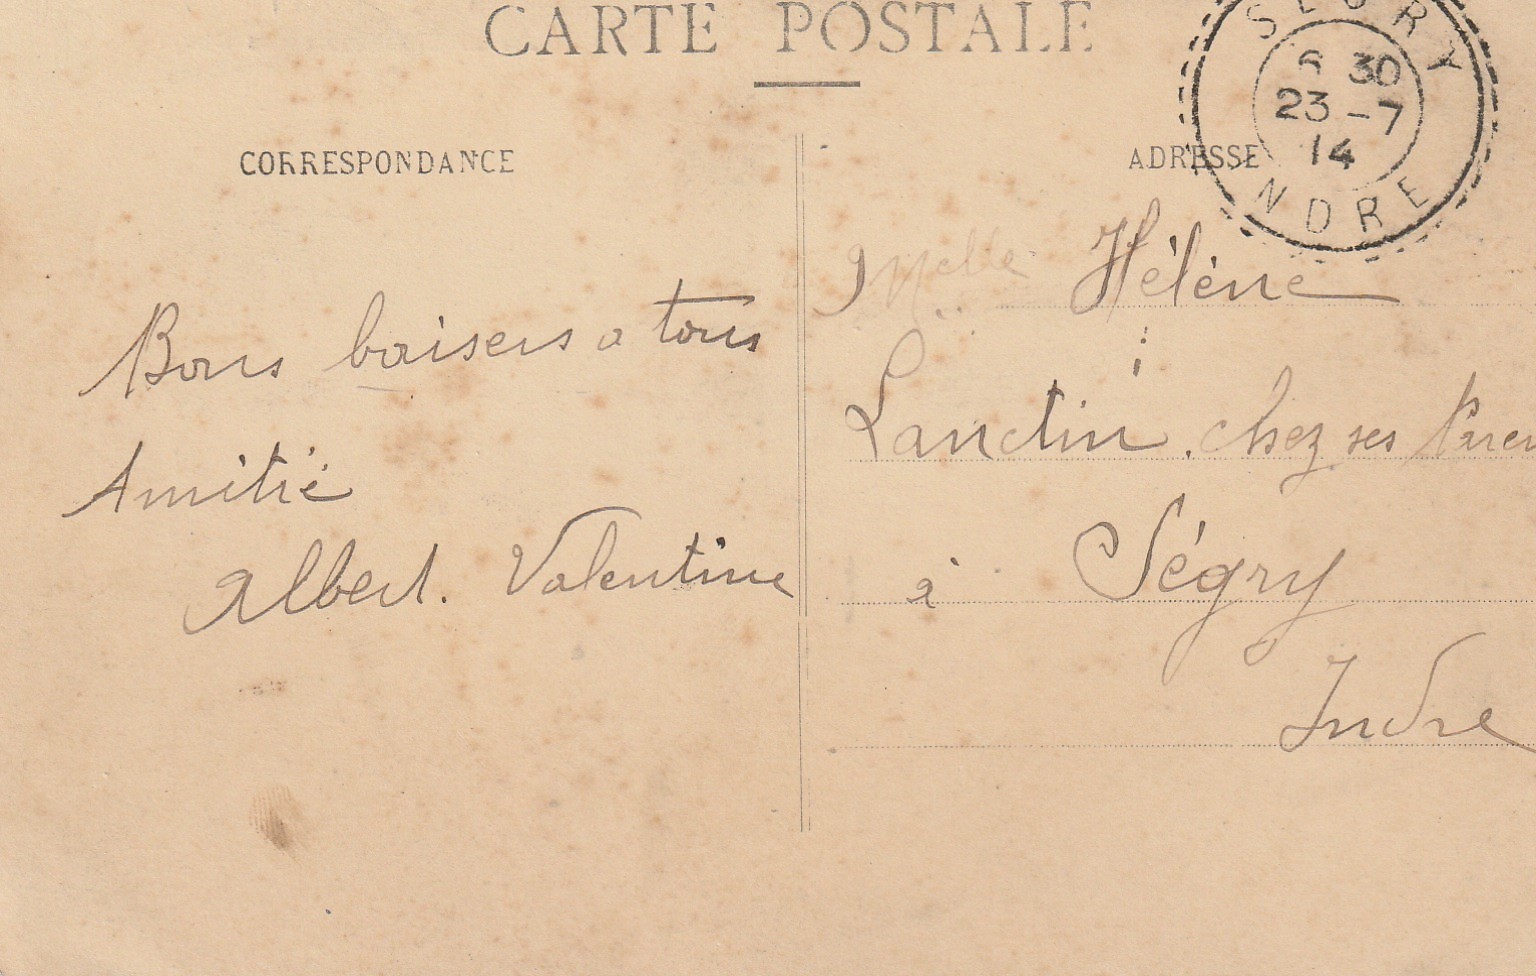 CARTE POSTALE
SEGRY
6 30
23 - 7
14
INDRE
CORRESPONDANCE
ADRESSE
Bons baisers a tous
Amitié
Albert. Valentine
Melle Hélène
Lanctin. chez ses Paren
à Ségry
Indre